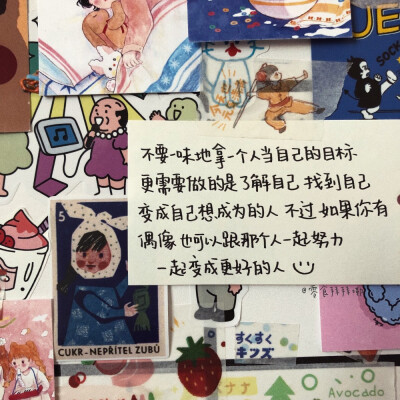 UE
SOCK
不要一味地拿一个人当自己的目标
更需要做的是了解自己 找到自己
变成自己想成为的人 不过 如果你有
偶像 也可以跟那个人一起努力
一起变成更好的人
5
CUKR-NEPŘÍTEL ZUBŮ
すくすく
キッズ
Avocado